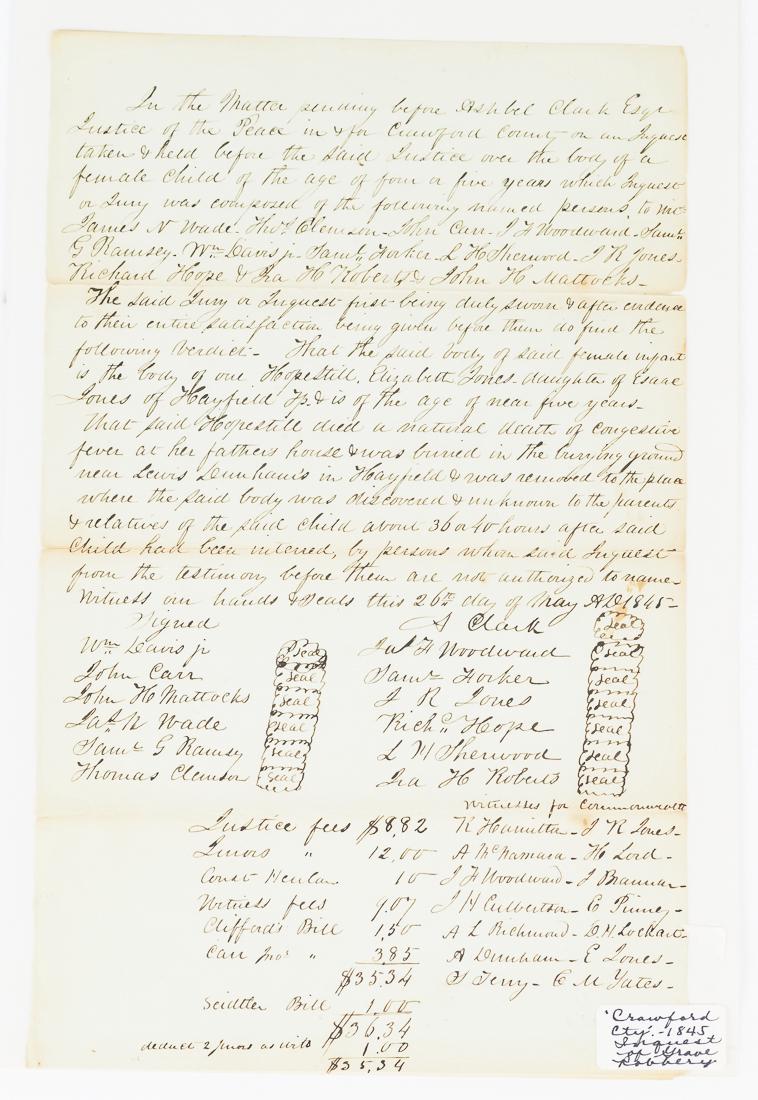 In the Matter pending before Ashbel Clark Esqr
Justice of the Peace in & for Crawford County on an Inquest
taken & held before the said Justice over the body of a
female child of the age of four or five years which Inquest
or Jury was composed of the following named persons, to wit
James N Wade - Thos Clemson - John Carr - J F Woodward - Saml
G Ramsey - Wm Davis jr - Saml Forker - L H Sherwood - J R Jones -
Richard Hope & Ira H Roberts & John H Mattocks -
The said Jury or Inquest first being duly sworn & after evidence
to their entire satisfaction being given before them do find the
following verdict - That the said body of said female infant
is the body of one Hopestill Elizabeth Jones - daughter of Esaac
Jones of Hayfield Tp. & is of the age of near five years -
That said Hopestill died a natural death of congestive
fever at her fathers house & was buried in the burying ground
near Lewis Dunham's in Hayfield & was removed to the place
where the said body was discovered & unknown to the parents
& relatives of the said child about 36 or 40 hours after said
Child had been interred, by persons whom said Inquest
from the testimony before them are not authorized to name -
Witness our hands & Seals this 26th day of May AD 1845 -
Signed A Clark Seal
Wm Davis jr Seal Jas F Woodward Seal
John Carr Seal Saml Forker Seal
John H Mattocks Seal J R Jones Seal
Jas N Wade Seal Richd Hope Seal
Saml G Ramsey Seal L H Sherwood Seal
Thomas Clemson Seal Ira H Roberts Seal
Witnesses for Commonwealth
Justice fees $8.82 R Hamilton - J R Jones -
Jurors " 12.00 A McNamara - H Lord -
Const 10 J F Woodward - J Brannan -
Witness fees 9.07 J H Culbertson - E Pinney -
Clifford's Bill 1.50 A L Richmond - D. M. Lockart -
Carr Jno's " 3.85 A Dunham - E Jones -
$35.34 S Terry - C M Yates -
Seidtler Bill 1.00
$36.34
deduct 2 jurors as wits 1.00
$35.34
'Crawford
Cty'. - 1845
Inquest
of Grave
Robbery